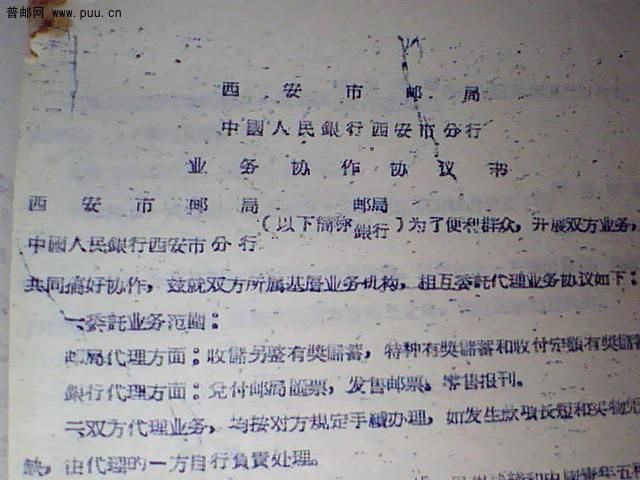 普邮网 www.puu.cn
西安市邮局
中國人民銀行西安市分行
业务协作协议书
西安市邮局 邮局
中國人民銀行西安市分行（以下简称銀行）为了便利群众，开展双方业务，
共同搞好协作，兹就双方所属基层业务机构，相互委託代理业务协议如下：
一委託业务范圍：
邮局代理方面：收儲另整有奬儲蓄，特种有奬儲蓄和收付定額有奬儲
銀行代理方面：兑付邮局匯票，发售邮票，零售报刊。
二双方代理业务，均按对方規定手續办理，如发生款項长短和实物
缺，由代理的一方自行負責处理。